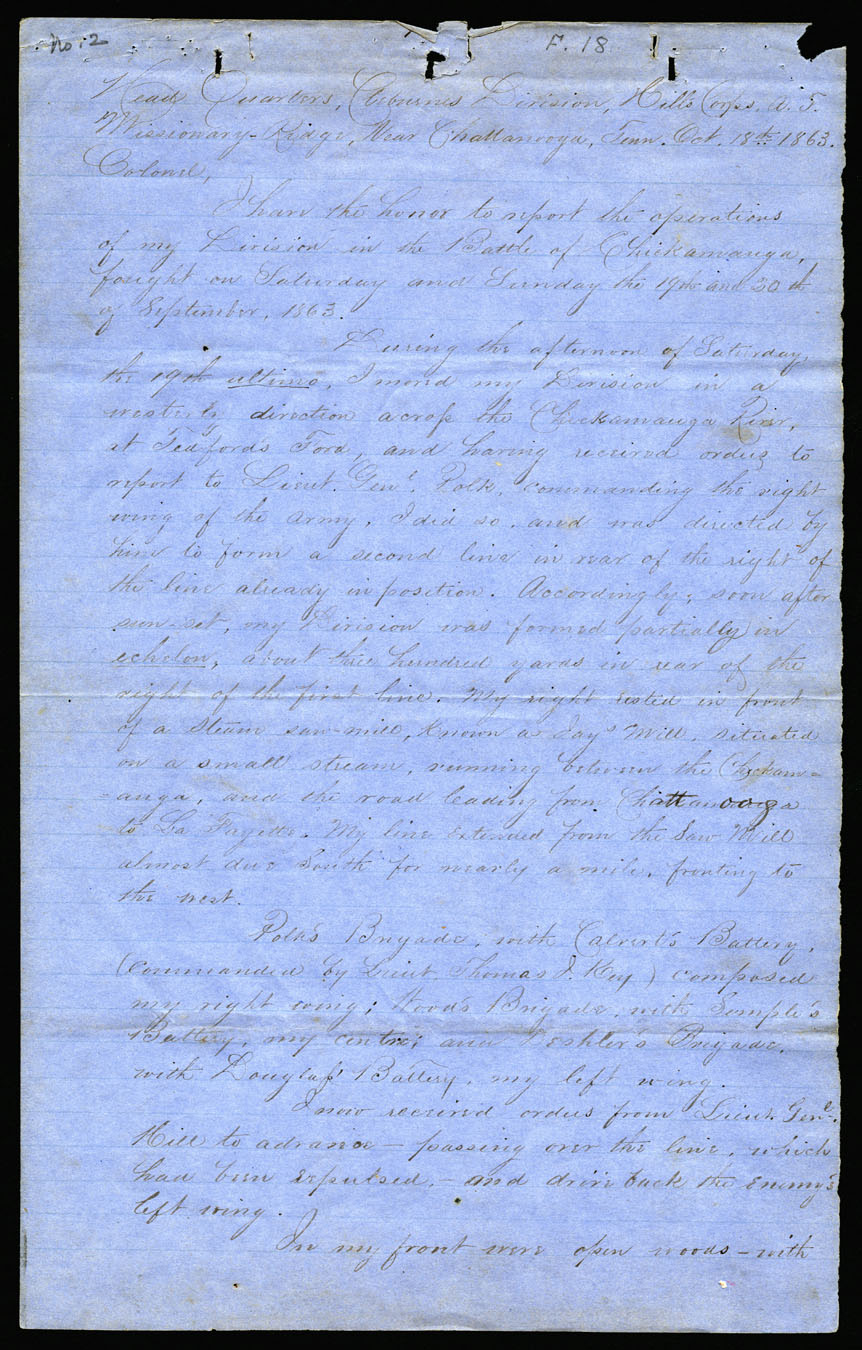 No. 2
F. 18
Head Quarters, Cleburne's Division, Hill's Corps, A. T.
Missionary-Ridge, Near Chattanooga, Tenn. Oct. 18th 1863.
Colonel,
I have the honor to report the operations
of my Division in the Battle of Chickamauga,
fought on Saturday and Sunday the 19th and 20th
of September, 1863.
During the afternoon of Saturday,
the 19th ultimo, I moved my Division in a
westerly direction across the Chickamauga River,
at Tedford's Ford, and having received orders to
report to Lieut. Genl. Polk, commanding the right
wing of the army, I did so, and was directed by
him to form a second line in rear of the right of
the line already in position. Accordingly, soon after
sun-set, my Division was formed partially in
echelon, about three hundred yards in rear of the
right of the first line. My right rested in front
of a steam saw-mill, known as Jay's Mill, situated
on a small stream, running between the Chickam=
=auga, and the road leading from Chattanooga
to La Fayette. My line extended from the Saw Mill
almost due South for nearly a mile, fronting to
the west.
Polk's Brigade, with Calvert's Battery,
(commanded by Lieut. Thomas J. Key) composed
my right wing; Wood's Brigade, with Semple's
Battery, my centre; and Deshler's Brigade,
with Douglass' Battery, my left wing.
I now received orders from Lieut. Genl.
Hill to advance – passing over the line, which
had been repulsed, – and drive back the Enemy's
left wing.
In my front were open woods – with